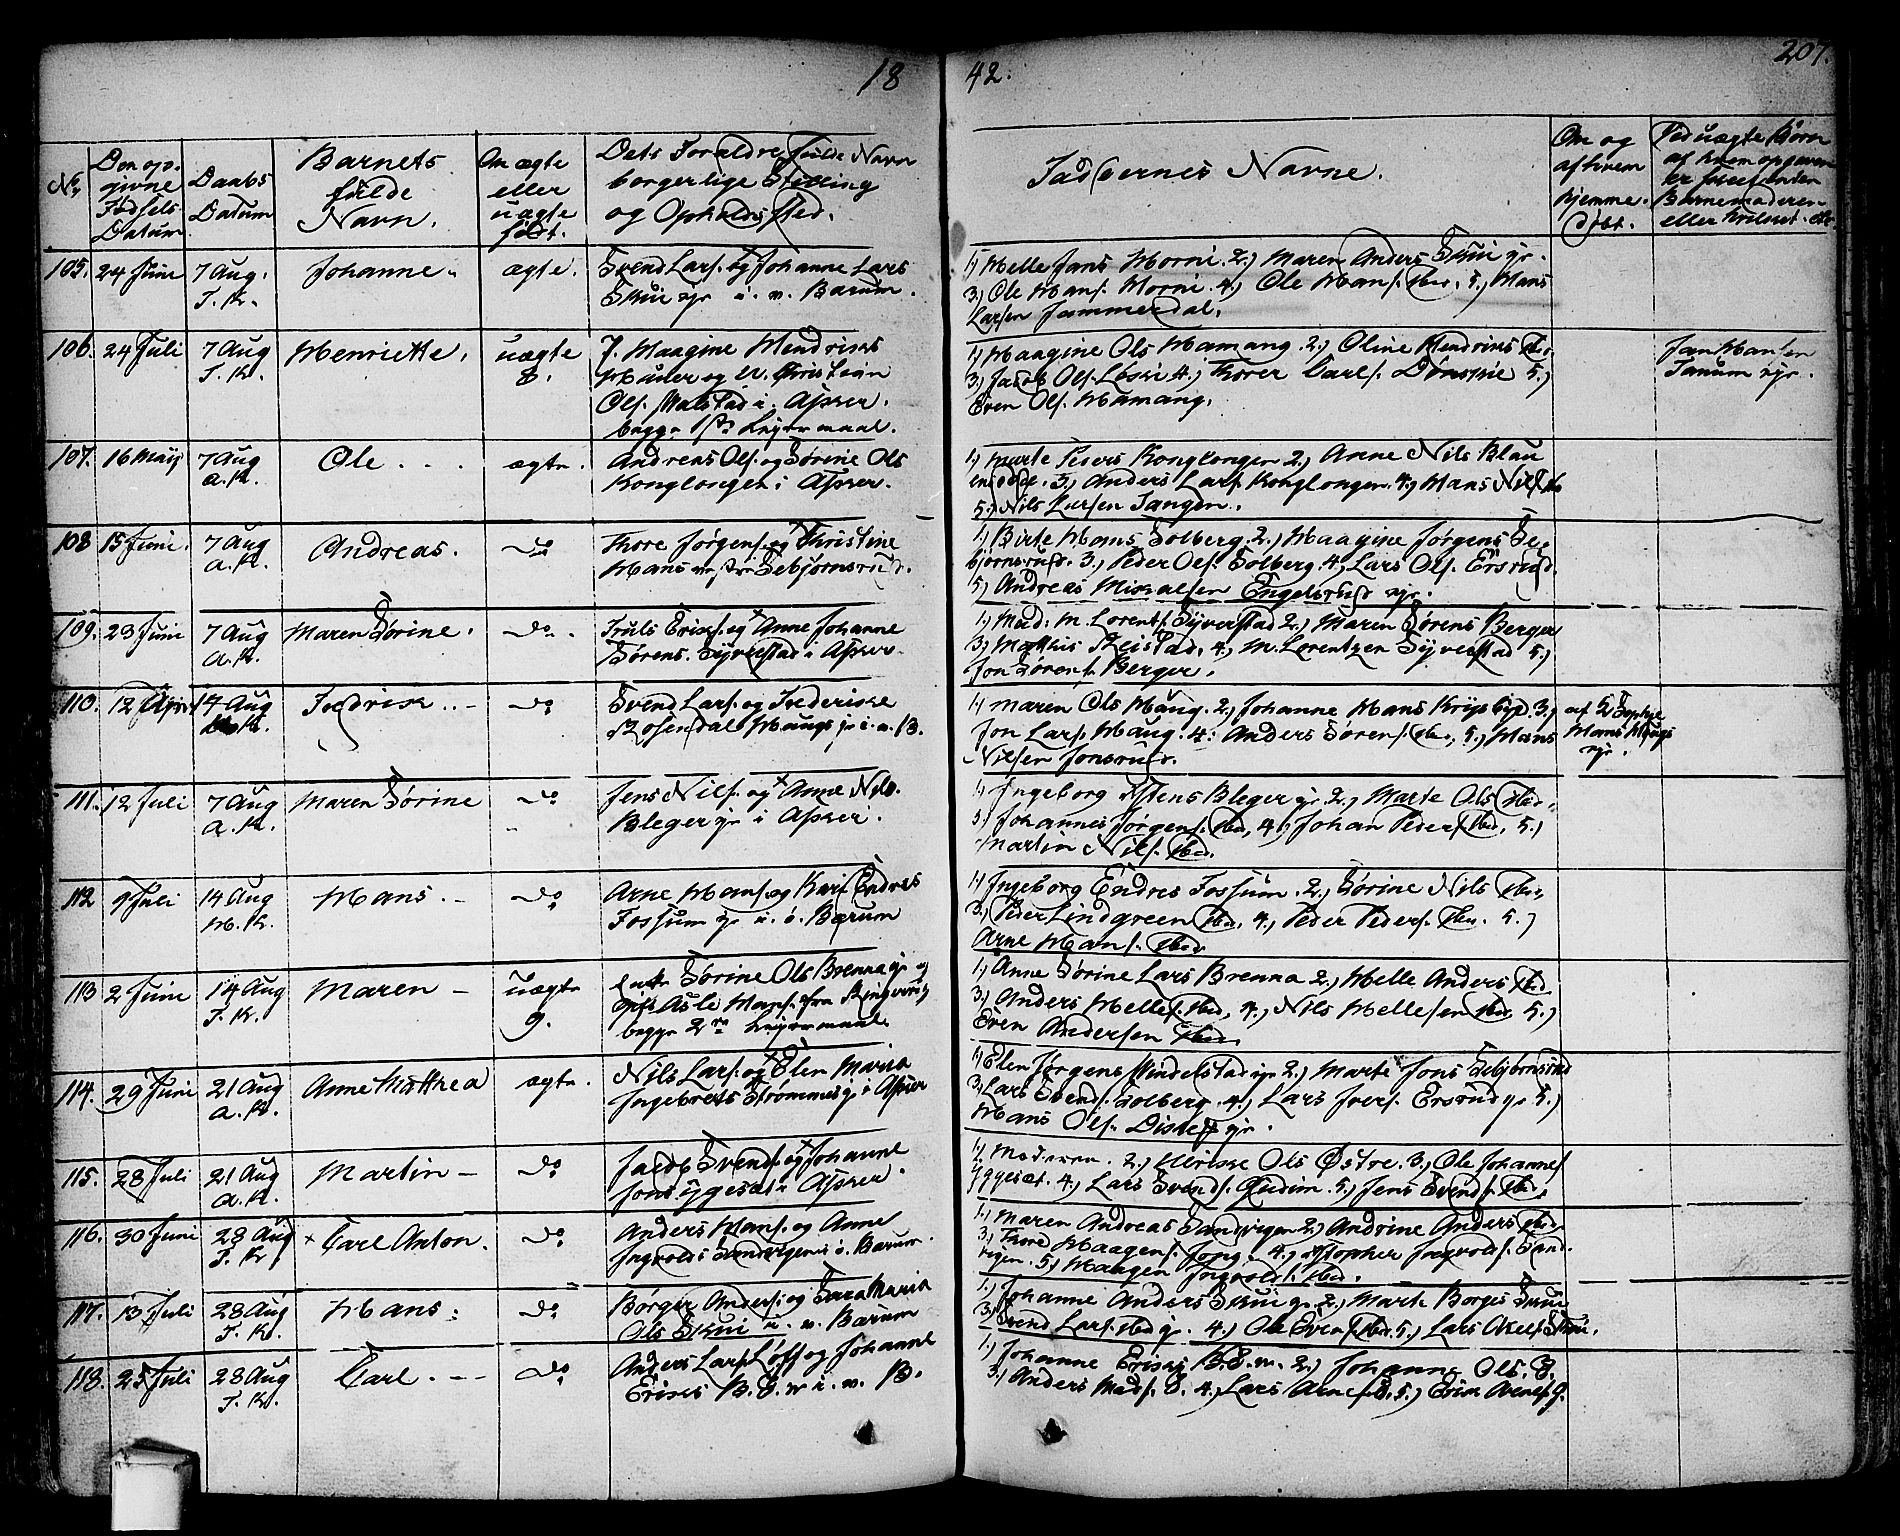 18
42.
207.
No
Den op-
givne
Fødsels
Datum
Daabs
Datum
Barnets
fulde
Navn.
Om ægte
eller
uægte
født.
Dets Forældre fulde Navn
borgerlige Stilling
og Opholds Sted.
Faddernes Navne.
Om og
af hvem
hjemme-
døbt.
Ved uægte Børn
Barnemoderen
105. 24 Juni 7 Aug. Johanne. ægte. Svend Lars. og Johanne Lars
T. K. Skui ejr i. v. Bærum.
1, Helle Jans Horni. 2, Maren Anders Skui ejr.
3, Ole Hans. Horni. 4, Ole Hans. sted, 5, Hans
Larsen Jammerdal.
106. 24 Juli 7 Aug Henriette. uægte J. Maagine Hendriks
T. K. 8. og Christian
Ols. i Asker.
begge 1ste Leiermaal.
1, Haagine Ols Hamang. 2, Oline Hendriks sted
3, Jacob Ols. Løkki 4, Thorer Carls. Dønski 5,
Even Ols. Hamang.
Jan Hansen
Tanum ejr.
107. 16 Maij 7 Aug Ole ægte. Andreas Ols. og Sørine Ols
A. K. Konglongen i Asker.
1, Marte Peders Konglongen 2, Anne Nils Blau
3, Anders Lars. Konglongen. 4, Hans Nils. sted
5, Nils Larsen Tangen.
108 15 Juni. 7 Aug Andreas. do Thore Jørgens. og Christine
A. K. Hans Sebjørnsrud.
1, Birte Hans Solberg. 2, Haagine Jørgens Se-
bjørnsrud. 3, Peder Ols. Solberg 4, Lars Ols. Ersrud.
5, Andreas Mikkelsen Engelsrud ejr.
109. 23 Juni 7 Aug Maren Sørine. do. Truls Eriks. og Anne Johanne
A. K. Sørens. Syverstad i Asker.
1, Mad: M. Lorents. Syverstad 2, Maren Sørens Berger
3, Mathis Skistad, 4, M. Lorentzen Syverstad 5,
Jon Sørens. Berger.
110. 12 April 14 Aug Fredrik do Svend Lars. og Frederikke
H. K. Rosendal Haugs ejr i. ø. B.
1, Maren Ols Haug. 2, Johanne Hans 3,
Jon Lars. Haug. 4. Anders Sørens. sted, 5, Hans
Nilsen Jonsrud.
af Sophie
Hans Haugs
ejr.
111. 12 Juli 7 Aug Maren Sørine do Jens Nils. og Anne Nils.
A. K. Bleger ejr i Asker.
1, Ingeborg Bleger ejr 2, Marte Ols sted.
3, Johannes Jørgens. sted, 4, Johan Peders. sted, 5,
Martin Nils. sted.
112 9 Juli 14 Aug Hans. do Arne Hans. og Kari Endres
H. K. Fossum ejr i. ø. Bærum
1, Ingeborg Endres Fossum. 2, Sørine Nils sted.
3, Peder Lindgreen sted, 4, Peder Peders. sted. 5,
Arne Hans. sted.
113 2 Juni 14 Aug Maren uægte Sørine Ols Brenna ejr og
T. K. 9. Asle Hans. fra Ringerrig
begge 2re Leiermaal.
1, Anne Sørine Lars Brenna 2, Helle Anders sted
3, Anders Helles. sted, 4, Nils Hellesen sted, 5,
Even Andersen sted.
114. 29 Juni 21 Aug Anne Mathea ægte. Nils Lars. og Elen Maria
A. K. Ingebrets Strømmes ejr i Asker
1, Elen Jørgens Hindelstad ejr 2, Marte Jons Sebjørnsrud
3, Lars Svends. Solberg. 4, Lars Ivers. Ersrud ejr 5,
Hans Ols. ejr.
115. 28 Juli 21 Aug Martin do Jacob Svends. og Johanne
A. K. Jons Yggeset i Asker.
1, Moderen. 2, Ulrikke Ols Østre. 3, Ole Johannes.
Yggeset. 4, Lars Svends. Gudim. 5, Jens Svends. sted.
116. 30 Juni 28 Aug Carl Anton. do Anders Hans. og Anne
T. K. Ingvolds Sandvigen i ø. Bærum.
1, Maren Andreas Sandvigen 2, Andrine Anders sted.
3, Thore Haagens. Jong. 4, Ingvolds. Sand-
vigen. 5, Haagen Ingvolds. sted.
117. 13 Juli 28 Aug Hans. do Børger Anders. og Sara Maria
T. K. Ols Skui i. v. Bærum
1, Johanne Anders Skui ejr 2, Marte Borges Skui
3, Svend Lars. sted ejr. 4, Ole Evens. sted. 5, Lars Axels. Skui.
118. 25 Juli 28 Aug Carl. do Anders Lars. og Johanne
T. K. Eriks B. E. v i. v. B.
1, Johanne Eriks B. E. v. 2, Johanne Ols. G.
3, Anders Mads. G. 4, Lars Arnes. G. 5, Erik Arnes. G.